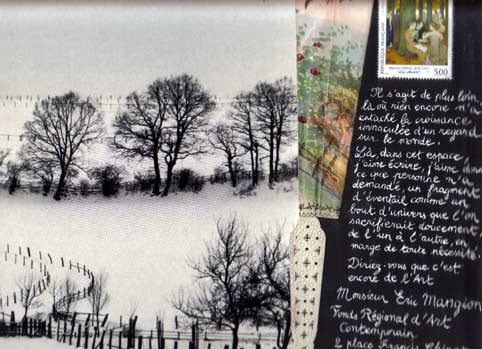 RÉPUBLIQUE FRANÇAISE
5,00
Il s'agit de plus loin
là où rien encore n'a
estaché la croissance
immaculée d'un regard
sur le monde.
Là, dans cet espace,
j'aime écrire, j'aime
ce que personne n'a
demandé, un fragment
d'éventail comme un
bout d'univers que l'on
sacrifierait doucement
de l'un à l'autre, en
marge de toute nécessité.
Diriez-vous que c'est
encore de l'Art
Monsieur Eric Mangion
Fonds Régional d'Art
Contemporain
2 place Francis